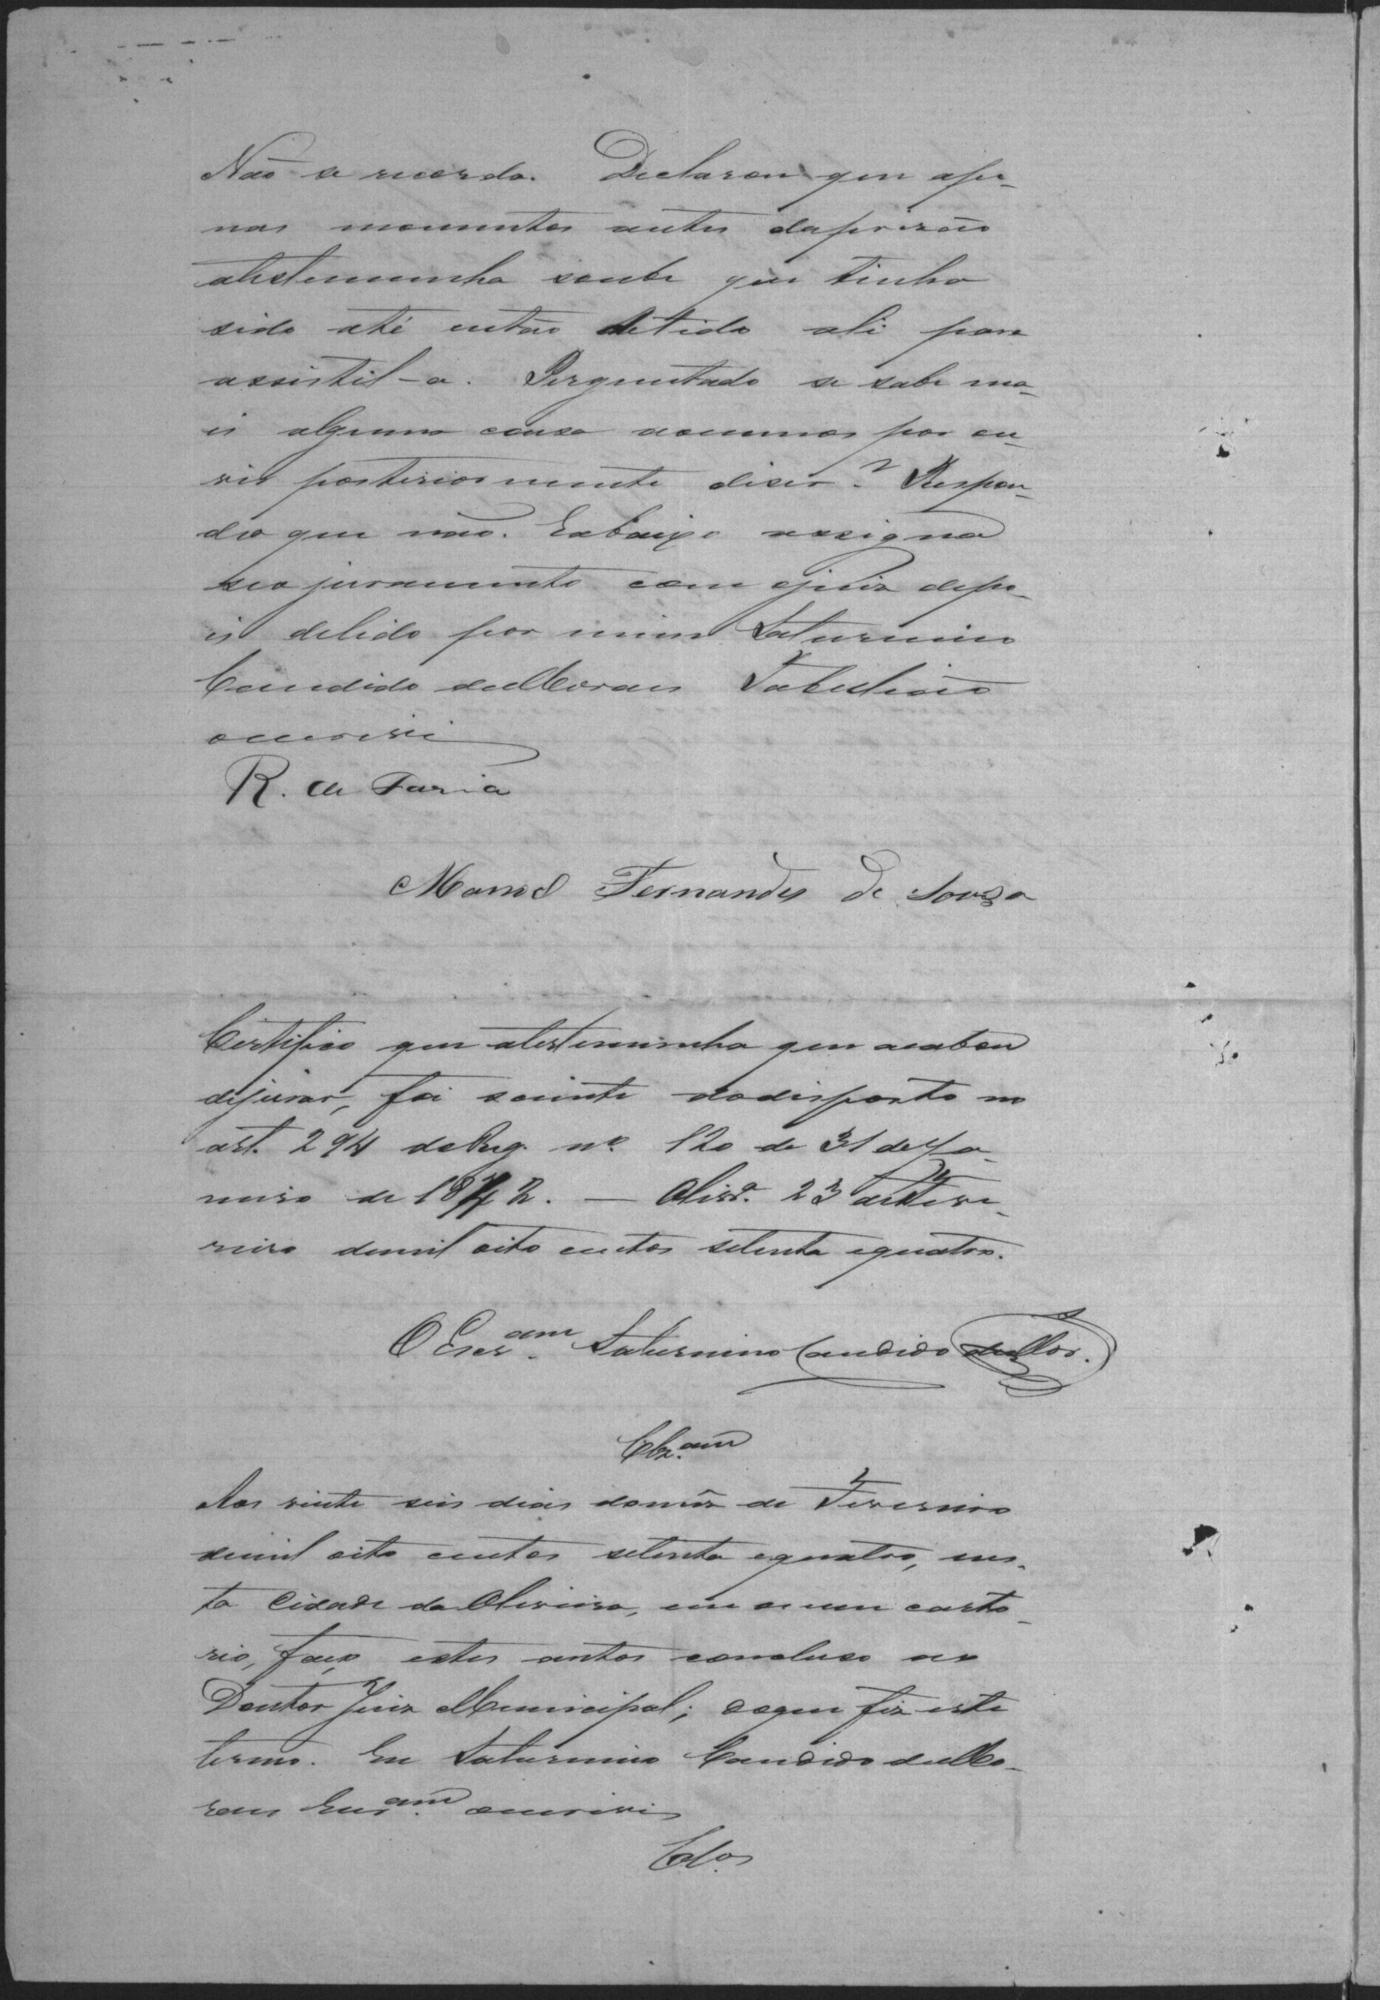 Não se recorda. Declarou que ape-
nas momentos antes daprisão
atestemunha soube que tinha
sido até então detido ali para
assistil-a. Perguntado se sabe ma-
is alguma cousa aomenos por ou-
vir posteriormente diser? Respon-
deo que não. Eabaixo assigna
seo juramento com ojuiz depo-
is delido por mim Saturnino
Candido deMoraes Tabelião
oescrivi
R. de Faria
Manoel Fernandes de Souza
Certifico que atestemunha que acabou
dejurar, foi sciente dodisposto no
art. 294 doReg. nº 120 de 31 deJa-
neiro de 1842. — Olivrª. 23 deFeve-
reiro demil oito centos setenta equatro.
O Escr.am Saturnino Candido deMor.
Clz.am
Aos vinte seis dias domês de Fevereiro
demil oito centos setenta equatro, nes-
ta Cidade da Oliveira, em o meu carto-
rio, faço estes autos concluso ao
Doutor Juiz Municipal; doque fiz este
termo. Eu Saturnino Candido deMo-
raes Escr.am oescrivi
Cl.os